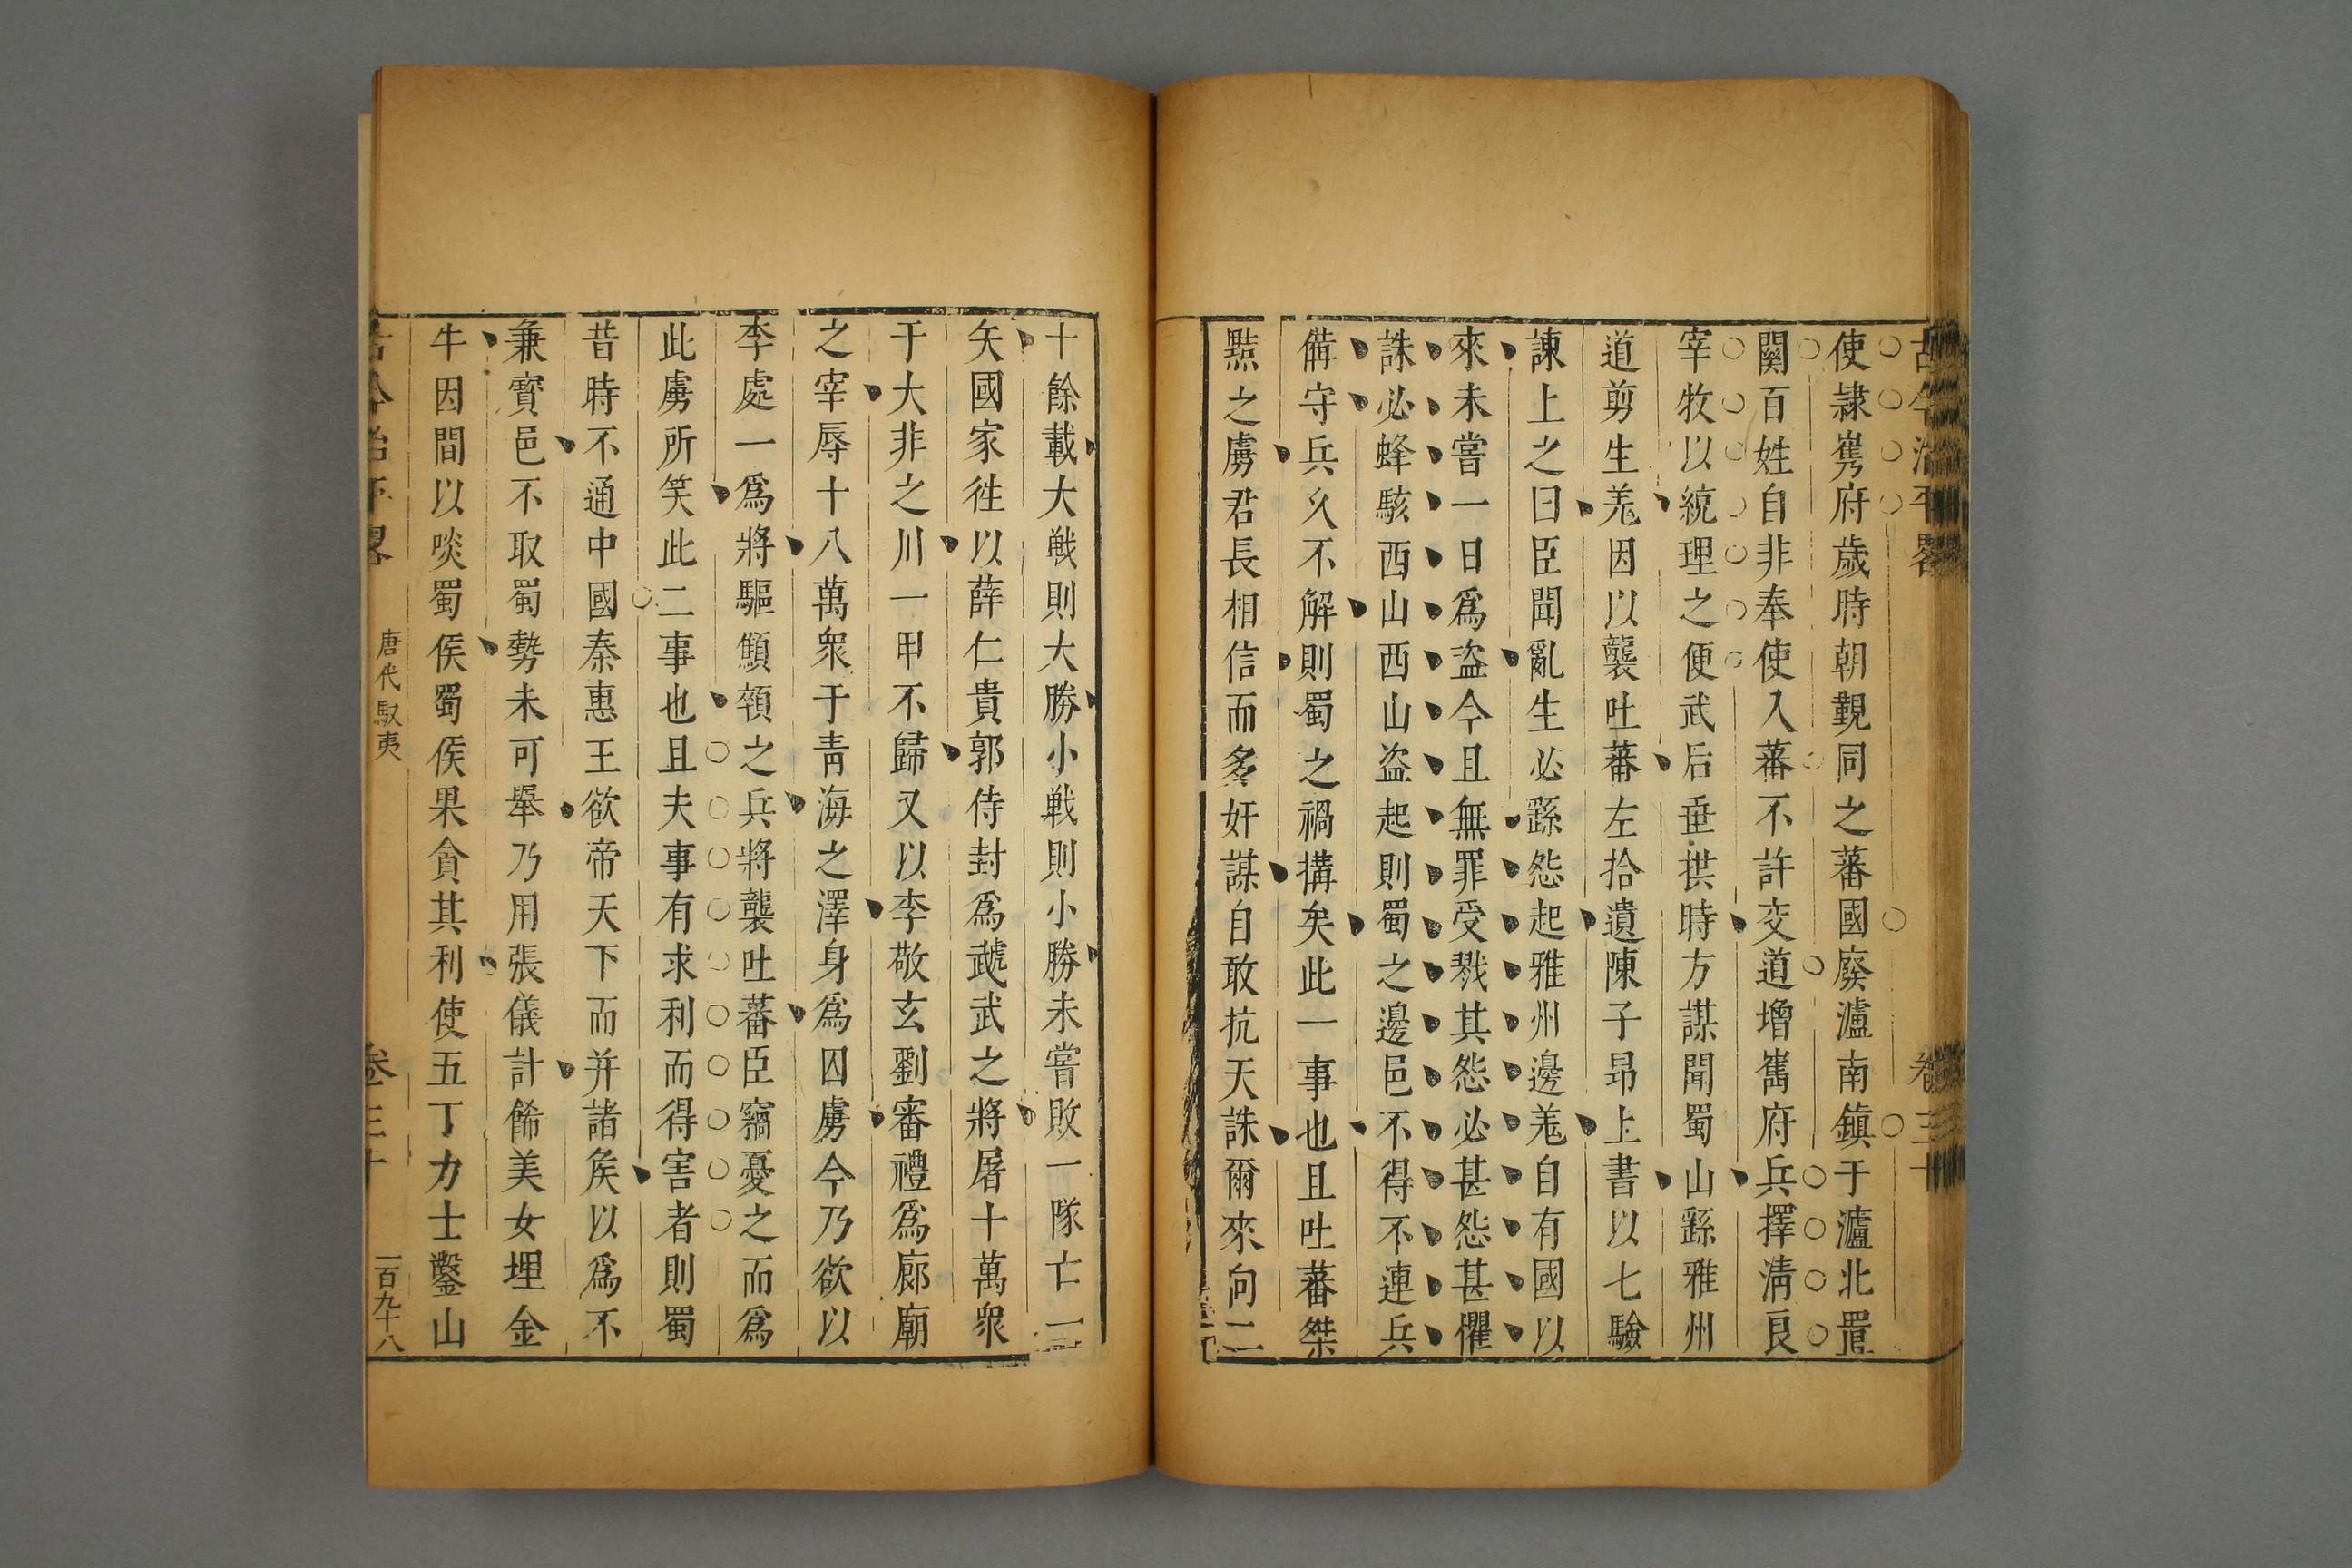 古今治平畧
卷三十
使隷嶲府歲時朝覲同之蕃國廢瀘南鎮于瀘北置
關百姓自非奉使入蕃不許交道增嶲府兵擇清良
宰牧以統理之便武后垂拱時方謀聞蜀山繇雅州
道剪生羗因以襲吐蕃左拾遺陳子昂上書以七驗
諫上之曰臣聞亂生必繇怨起雅州邊羗自有國以
來未嘗一日爲盜今且無罪受戮其怨必甚怨甚懼
誅必蜂駭西山西山盜起則蜀之邊邑不得不連兵
備守兵久不解則蜀之禍搆矣此一事也且吐蕃桀
黠之虜君長相信而多奸謀自敢抗天誅爾來向二
十餘載大戰則大勝小戰則小勝未嘗敗一隊亡一
矢國家徃以薛仁貴郭侍封爲虣武之將屠十萬衆
于大非之川一甲不歸又以李敬玄劉審禮爲廊廟
之宰辱十八萬衆于青海之澤身爲囚虜今乃欲以
李處一爲將驅顦顇之兵將襲吐蕃臣竊憂之而爲
此虜所笑此二事也且夫事有求利而得害者則蜀
昔時不通中國秦惠王欲帝天下而并諸矦以爲不
兼賨邑不取蜀勢未可舉乃用張儀計餙美女埋金
牛因間以啖蜀矦蜀矦果貪其利使五丁力士鑿山
古今治平畧
唐代馭夷
卷三十
一百九十八